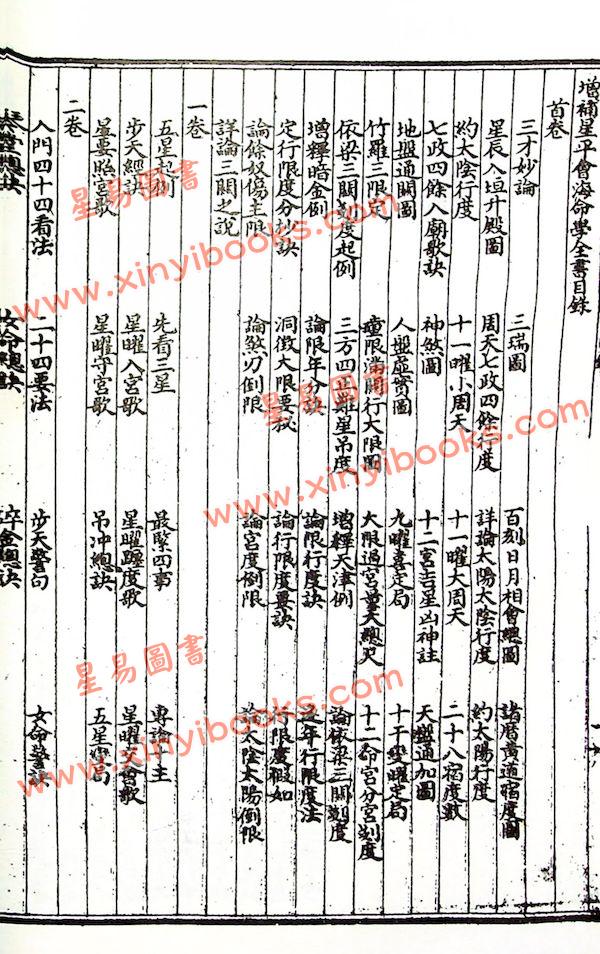 增補星平會海命學全書目錄
首卷
三才妙論 三瑞圖 百刻日月相會總圖 諸曆黃道宿度圖
星辰入垣升殿圖 周天七政四餘行度 詳論太陽太陰行度 約太陽行度
約太陰行度 十一曜小周天 十一曜大周天 二十八宿度數
七政四餘入廟歌訣 神煞圖 十二宮吉星凶神註 天盤通加圖
地盤通關圖 人盤虛實圖 九曜喜定局 十干變曜定局
竹羅三限定 童限滿關行大限圖 大限過宮量天總尺 十二命宮分宮刻度
依梁三關刻度起例 三方四正難星吊度 增釋天津例 論依梁三關刻度
增釋暗金例 論限年分訣 論限行度訣 逐年行限度法
定行限度分妙訣 洞徵大限要訣 論行限度要訣 行限度假如
論餘奴傷主限 論煞刃倒限 論宮度倒限 論太陰太陽倒限
詳論三關之說
一卷
五星起例 先看三星 最緊四事 專論十主
步天經訣 星曜入宮歌 星曜躔度歌 星曜交會歌
星要照宮歌 星曜守宮歌 吊冲總訣 五星
二卷
入門四十四看法 二十四要法 步天警句 女命警訣
總訣 女命總訣 碎金總訣
星易圖書
www.xinyibooks.com
星易圖書
www.xinyibooks.com
星易圖書
www.xinyibooks.com